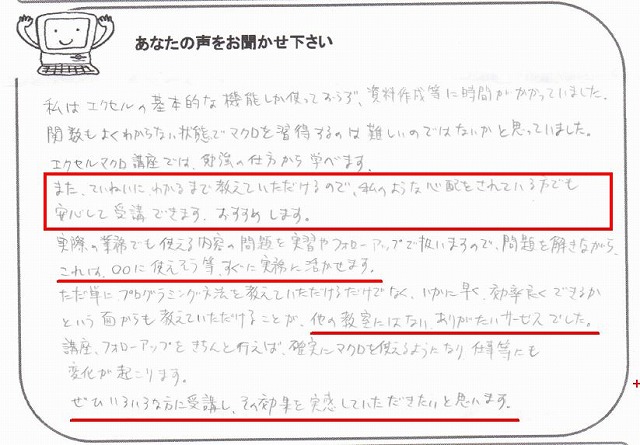 あなたの声をお聞かせ下さい
私はエクセルの基本的な機能しか使っておらず、資料作成等に時間がかかっていました。
関数もよくわからない状態でマクロを習得するのは難しいのではないかと思っていました。
エクセルマクロ講座では、勉強の仕方から学べます。
また、ていねいに、わかるまで教えていただけるので、私のような心配をされている方でも
安心して受講できます。おすすめします。
実際の業務でも使える内容の問題を実習やフォローアップで扱いますので、問題を解きながら、
これは、〇〇に使えそう等、すぐに実務に活かせます。
ただ単にプログラミング方法を教えていただけるだけでなく、いかに早く、効率良くできるか
という面からも教えていただけることが、他の教室にはないありがたいサービスでした。
講座、フォローアップときちんと行えば、確実にマクロを使えるようになり 仕事等にも
変化が起こります。
ぜひいろいろな方に受講し、その効果を実感していただきたいと思います。